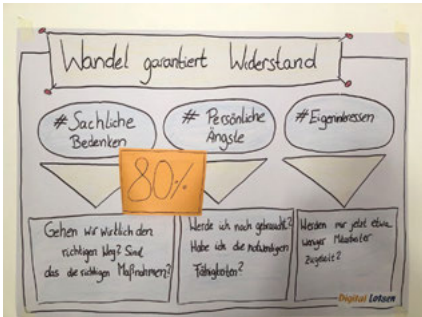 Wandel garantiert Widerstand
# Sachliche
Bedenken
# Persönliche
Ängste
# Eigeninteressen
80%
Gehen wir wirklich den
richtigen Weg? Sind
das die richtigen Maßnahmen?
Werde ich noch gebraucht?
Habe ich die notwendigen
Fähigkeiten?
Werden mir jetzt etwa
weniger Mitarbeiter
zugeteilt?
Digital Lotsen